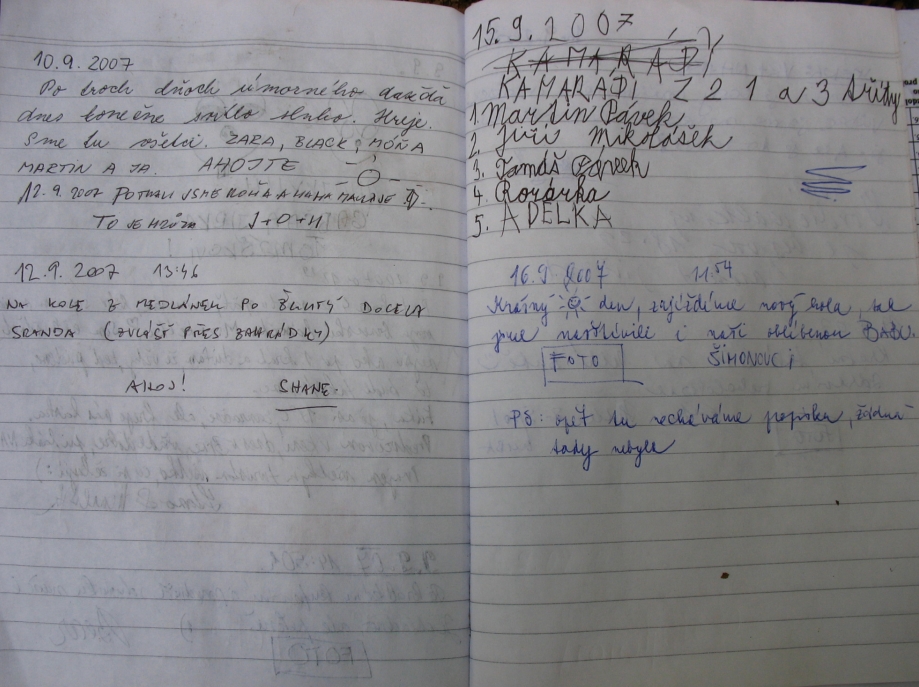 10.9.2007
Po troch dňoch úmorného dažďa
dnes konečne svitlo slnko. Hreje.
Sme tu všetci. ZARA, BLACK, MOŇA
MARTIN A JA. AHOJTE
12.9.2007 POTKALI JSME KOŇA A
TO JE HRŮZA J+O+H
12.9.2007 13:46
NA KOLE Z MEDLÁNEK PO ŽLUTÝ DOCELA
SRANDA (ZVLÁŠŤ PŘES ZAHRÁDKY)
AHOJ! SHANE.
15.9.2007
KAMARÁDI
KAMARÁDI Z 2 1 a 3 třídy
1. Martin Pávek
2. Jiří Mikolášek
3. Tomáš Pávek
4. Rozárka
5. ADELKA
16.9.2007 11:54
Krásný den, zajíždíme nový kola, tak
jsme navštívili i naši oblíbenou BABU.
FOTO ŠIMONOVCI
PS: opět tu necháváme propisku, žádná
tady nebyla